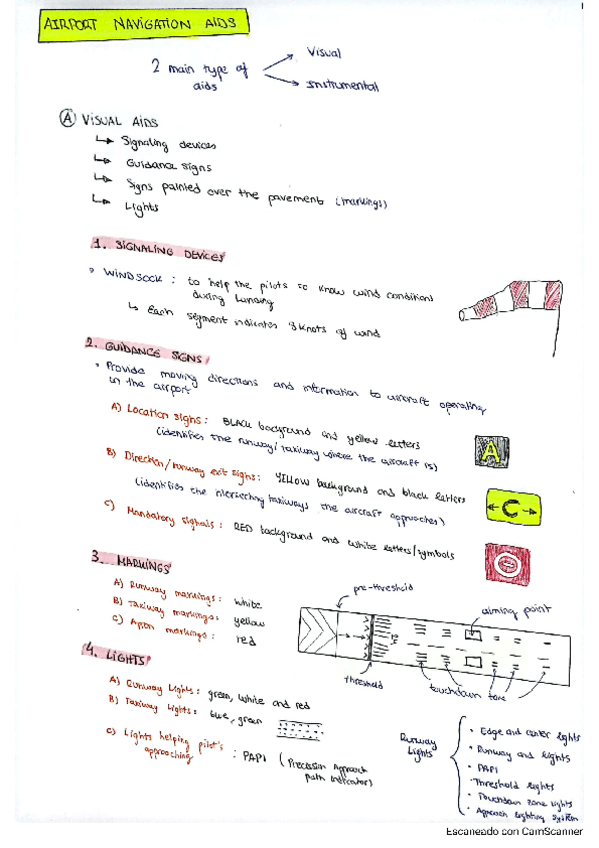 AIRPORT NAVIGATION AIDS
2 main type of aids
Visual
Instrumental
A VISUAL AIDS
Signaling devices
Guidance signs
Signs painted over the pavement (markings)
Lights
1. SIGNALING DEVICES
WINDSOCK : to help the pilots to know wind conditions
during landing
Each segment indicates 3 knots of wind
2. GUIDANCE SIGNS
Provide moving directions and information to aircraft operating
in the airport
A) Location signs : BLACK background and yellow letters
(identifies the runway/taxiway where the aircraft is)
A
B) Direction/runway exit signs : YELLOW background and black letters
(identifies the intersecting taxiways the aircraft approaches)
C
C) Mandatory signals : RED background and white letters/symbols
3. MARKINGS
A) Runway markings : white
B) Taxiway markings : yellow
C) Apron markings : red
pre-threshold
aiming point
threshold
touchdown zone
4. LIGHTS
A) Runway Lights : green, white and red
B) Taxiway Lights : blue, green
C) Lights helping pilot's
approaching : PAPI (Precision Approach
path indicator)
Runway
Lights
Edge and center lights
Runway end lights
PAPI
Threshold lights
Touchdown zone lights
Approach Lighting System
Escaneado con CamScanner